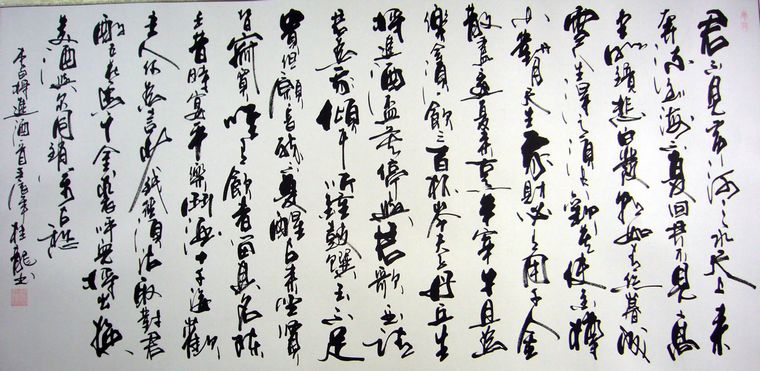 君不見黃河之水天上來
奔流到海不復回君不見高
堂明鏡悲白髮朝如青絲暮成
雪人生得意須盡歡莫使金樽
空對月天生我材必有用千金
散盡還復來烹羊宰牛且為
樂會須一飲三百杯岑夫子丹丘生
將進酒盃莫停與君歌一曲請
君為我傾耳聽鐘鼓饌玉不足
貴但願長醉不復醒古來聖賢
皆寂寞唯有飲者留其名陳
王昔時宴平樂斗酒十千恣歡
主人何為言少錢徑須沽取對君
酌五花馬千金裘呼兒將出換
美酒與爾同銷萬古愁
李白將進酒 桂龍書